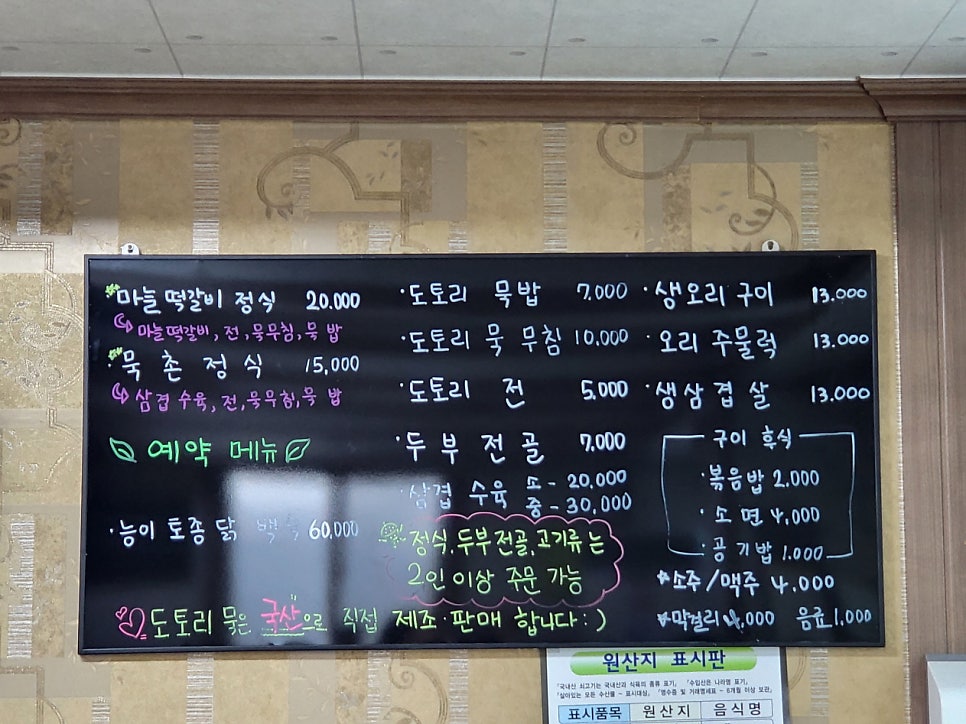 마늘떡갈비 정식 20.000
마늘떡갈비, 전, 묵무침, 묵 밥
·묵 촌 정 식 15,000
삼겹 수육, 전, 묵무침, 묵 밥
예약 메뉴
·능이 토종 닭 백숙 60,000
·도토리 묵밥 7.000
·도토리 묵 무침 10,000
·도토리 전 5.000
·두 부 전 골 7,000
·삼겹 수육 소 - 20,000
중 - 30,000
정식.두부전골.고기류 는
2인 이상 주문 가능
·생오리 구이 13.000
·오리 주물럭 13.000
·생삼 겹 살 13.000
구이 후식
·볶음밥 2.000
·소 면 4,000
·공 기 밥 1.000
*소주/맥주 4.000
*막걸리 4,000 음료 1.000
도토리 묵은 국산으로 직접 제조·판매 합니다 : )
원산지 표시판
표시품목 원 산 지 음 식 명